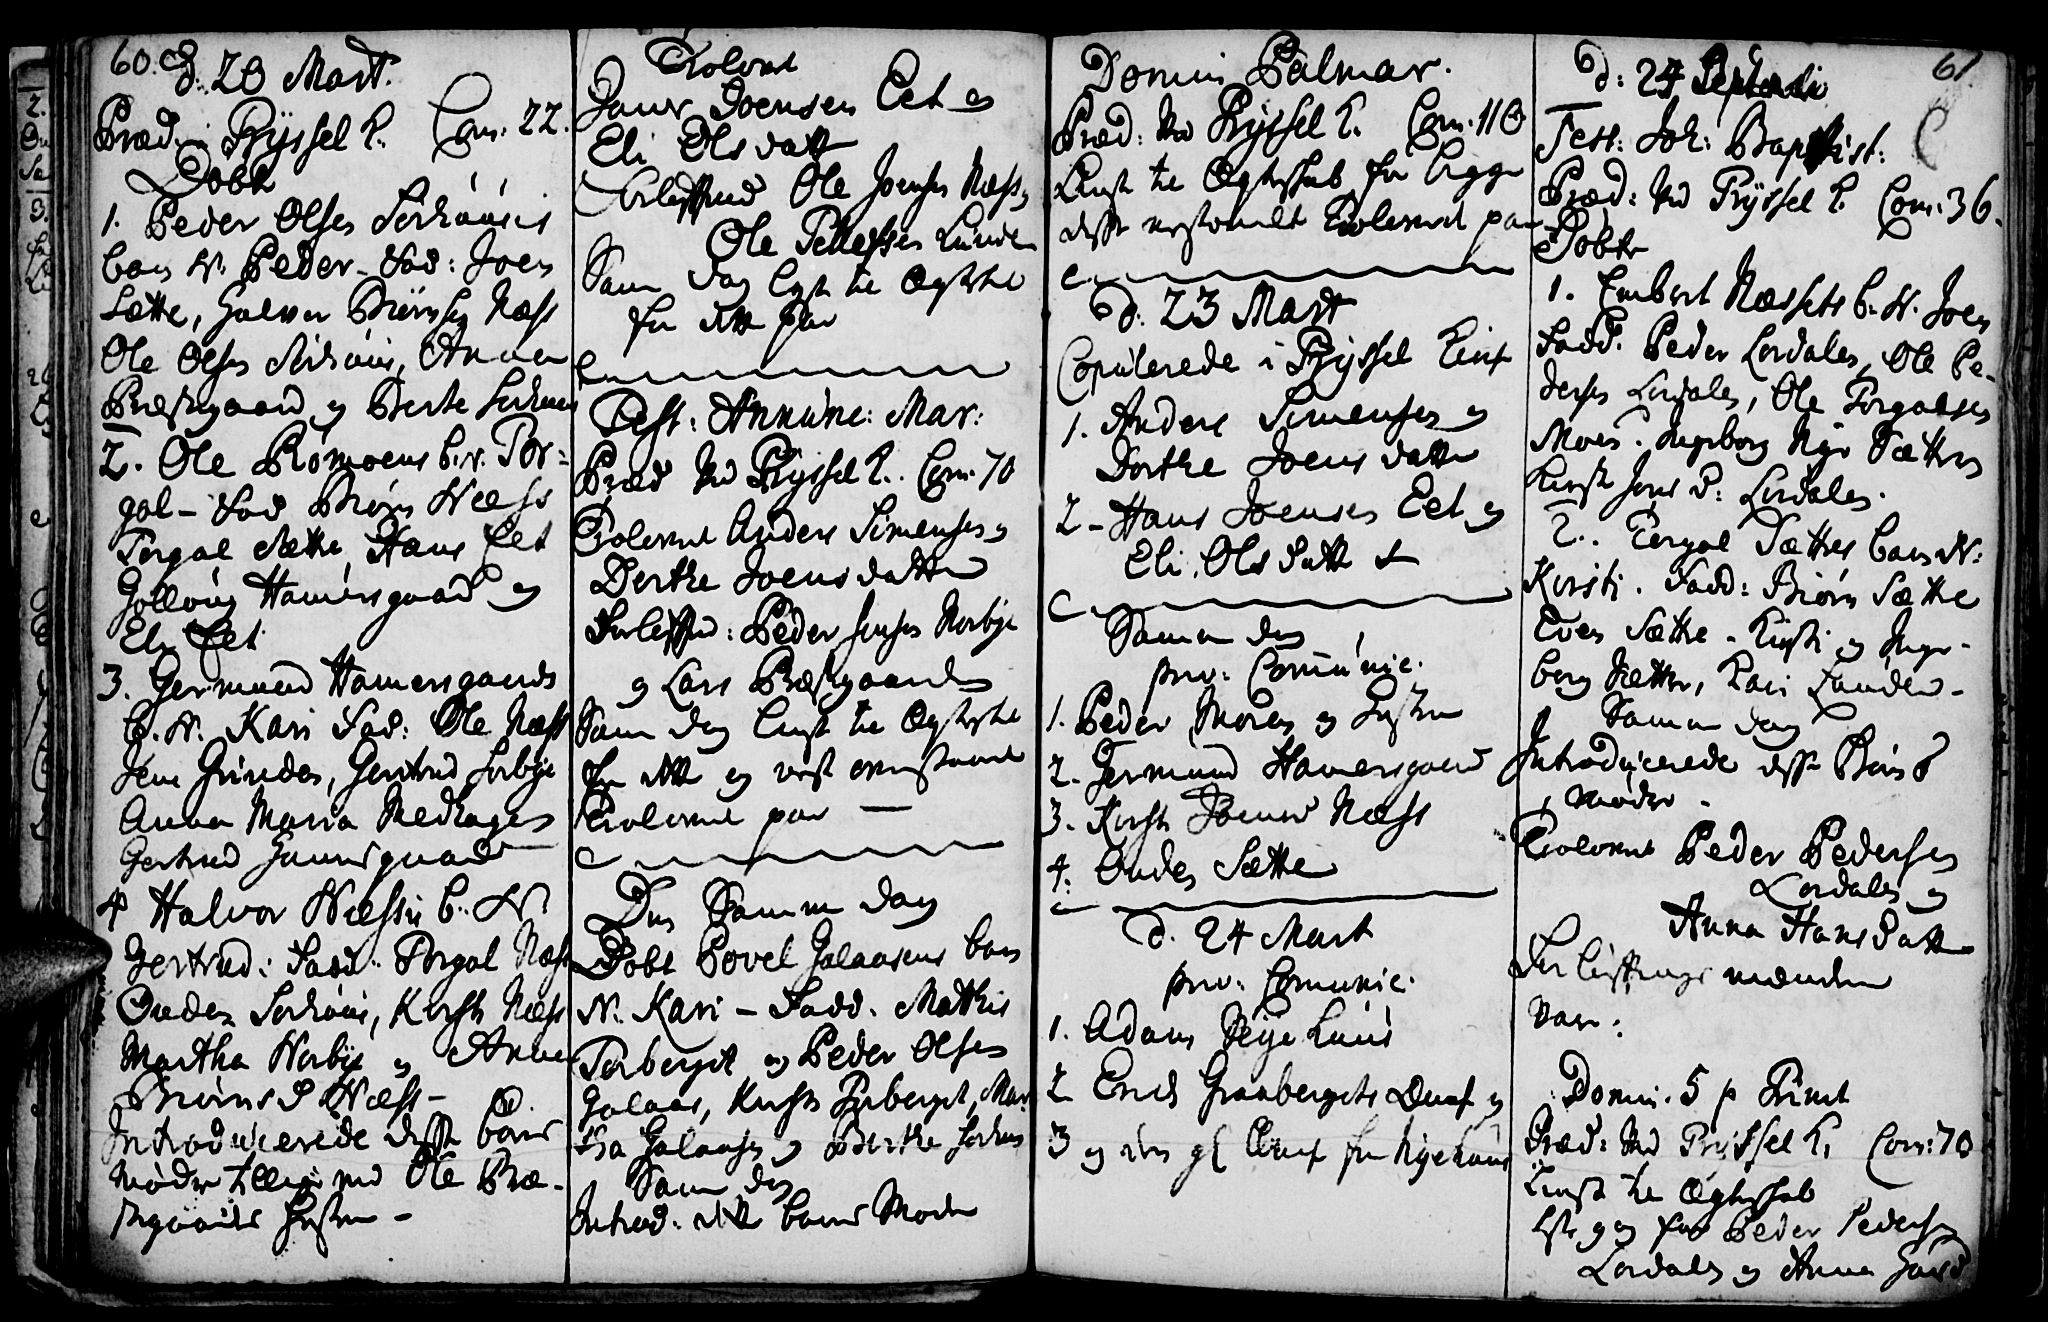 60.
d. 20 Mart.
Præd. i Tryssel K. Com: 22.
Døbt
1. Peder Olsen Sørhuusis
barn N. Peder - Fad: Joen
Sætte, Halvor Biørnsen Næss
Ole Olsen Sørhuus, Anna
Præstgaard og Berte Sørhuus
2. Ole Rømoens b. N. Tor=
gal - Fad Biørn Næss
Torgal Sætte, Hans Eet
Gollöug Hamersgaard og
Eli Eet
3. Germund Hamersgaards
b. N. Kari Fad: Ole Næss
Jens Grinden, Gertrud Norbye
Anna Maria Nedhagen
Gertrud Hamersgaard
4 Halvor Næssis b. N.
Gertrud: Fadd: Torgal Næss
Ouden Sørhuus, Kirsti Næss
Martha Norbye og Anna
Biørns D Næss -
Introducerede disse børns
mødre tillige med Ole Præ-
stgaards Hustru -
Trolovet
Hans Joensen Eet og
Eli Olsdatt
Forlessend Ole Joensen Næss
Ole Tollefsen Lunden
Samme dag lyst til Ægteskab
for dette par
Fest: Annunc: Mar:
Præd Ved Tryssel K. Com. 70
Trolovet Anders Simensen og
Dorthe Joensdatter
Forlessend: Peder Jensen Norbye
og Lars Præstgaarden
Samme dag lyst til Ægteskab
for dette og næst ovenstaaende
Trolovede par —
Den Samme dag
Døbt Povel Galaasens barn
N. Kari - Fadd. Mathis
Torberget og Peder Olsen
Galaas, Kirsti Torberget, Mar
tha Galaasen og Berthe Sørhuus
Samme dag
Introd: dette barns Moder
Domin Palmar.
Præd: Ved Tryssel K. Com. 110
Lyst til Ægteskab for begge
disse næstomelte Trolovede par
d. 23 Mart
Copulerede i Tryssel Kirke
1. Anders Simensen og
Dorthe Joensdatter
2 - Hans Joensen Eet og
Eli Olsdatt
Samme dag
priv: Communic.
1. Peder Moren og Hustru
2. Germund Hamersgaard
3. Kirsti Joensd Næss
4. Ouden Sætte
d. 24 Mart
priv: Comunic.
1. Adam Nye huus
2 Erich Graabergets Quinde og
3 og den gl Quinde fra Nyehuus
61
d: 24
Fest: Joh: Baptist:
Præd: Ved Tryssel K. Com: 36.
Døbte
1. Embert Næssets b. N. Joen
Fadd. Peder Lørdalen, Ole Pe-
dersen Lørdalen, Ole Torgalsen
Moen. Ingeborg Nye Sætter
Kirsti Jons D: Lørdalen.
2. Torgal Sætter barn N:
Kirsti. Fadd: Biørn Sætte
Even Sætte - Kirsti og Inge-
borg Sætter, Kari Lunden -
Samme dag
Introducerede disse Børns
Mødre -
Trolovet Peder Pedersen
Lørdalen og
Anna Hansdatter
Forløftnings mændene
var:
Domin. 5 p Trinit
Præd: Ved Tryssel K. Com: 70
Lyst til Ægteskab
første gang for Peder Pedersen
Lørdalen og Anna Hansd